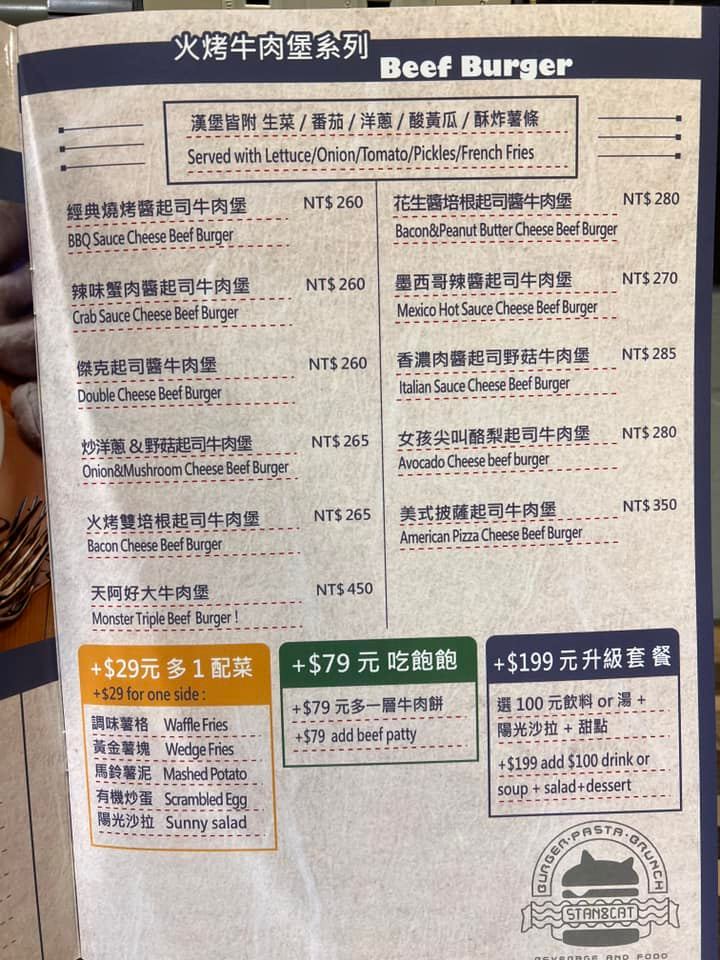 火烤牛肉堡系列 Beef Burger
漢堡皆附 生菜 / 番茄 / 洋蔥 / 酸黃瓜 / 酥炸薯條
Served with Lettuce/Onion/Tomato/Pickles/French Fries
經典燒烤醬起司牛肉堡 NT$ 260
BBQ Sauce Cheese Beef Burger
辣味蟹肉醬起司牛肉堡 NT$ 260
Crab Sauce Cheese Beef Burger
傑克起司醬牛肉堡 NT$ 260
Double Cheese Beef Burger
炒洋蔥&野菇起司牛肉堡 NT$ 265
Onion&Mushroom Cheese Beef Burger
火烤雙培根起司牛肉堡 NT$ 265
Bacon Cheese Beef Burger
天阿好大牛肉堡 NT$ 450
Monster Triple Beef Burger !
花生醬培根起司醬牛肉堡 NT$ 280
Bacon&Peanut Butter Cheese Beef Burger
墨西哥辣醬起司牛肉堡 NT$ 270
Mexico Hot Sauce Cheese Beef Burger
香濃肉醬起司野菇牛肉堡 NT$ 285
Italian Sauce Cheese Beef Burger
女孩尖叫酪梨起司牛肉堡 NT$ 280
Avocado Cheese beef burger
美式披薩起司牛肉堡 NT$ 350
American Pizza Cheese Beef Burger
+$29元 多 1 配菜
+$29 for one side :
調味薯格 Waffle Fries
黃金薯塊 Wedge Fries
馬鈴薯泥 Mashed Potato
有機炒蛋 Scrambled Egg
陽光沙拉 Sunny salad
+$79 元 吃飽飽
+$79 元多一層牛肉餅
+$79 add beef patty
+$199 元升級套餐
選 100 元飲料 or 湯 +
陽光沙拉 + 甜點
+$199 add $100 drink or
soup + salad+dessert
BURGER·PASTA·BRUNCH
STAN&CAT
BEVERAGE AND FOOD